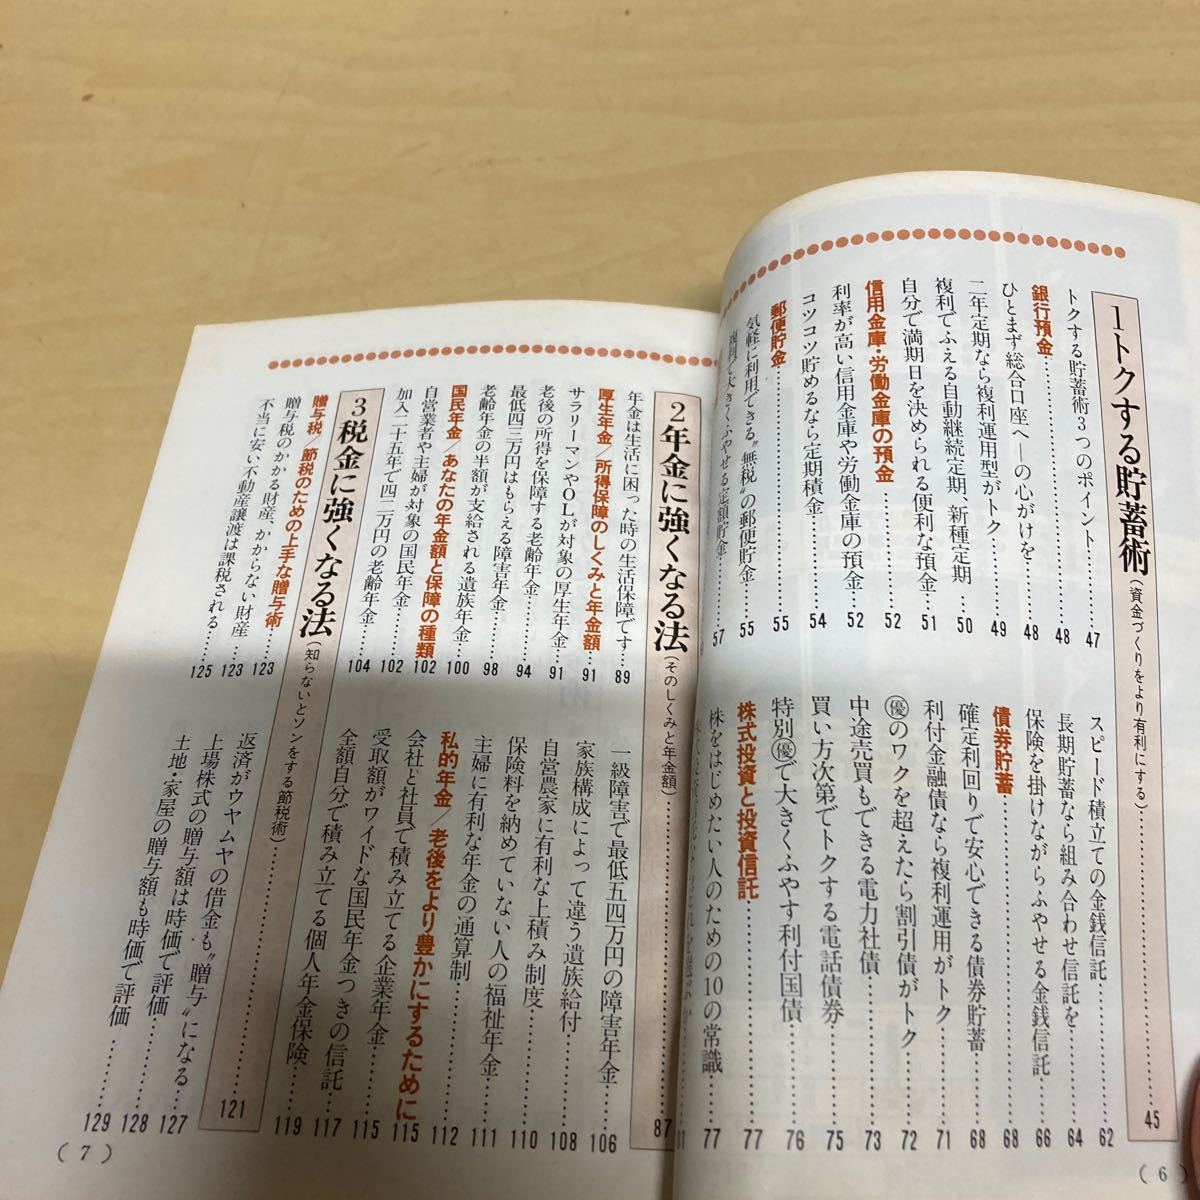 1トクする貯蓄術(資金づくりをより有利にする)……45
トクする貯蓄術3つのポイント……47
銀行預金……48
ひとまず総合口座へ―の心がけを……48
二年定期なら複利運用型がトク……49
複利でふえる自動継続定期、新種定期……50
自分で満期日を決められる便利な預金……51
信用金庫・労働金庫の預金……52
利率が高い信用金庫や労働金庫の預金……52
コツコツ貯めるなら定期積金……54
郵便貯金……55
気軽に利用できる〝無税〟の郵便貯金……55
複利で大きくふやせる定額貯金……57
スピード積立ての金銭信託……62
長期貯蓄なら組み合わせ信託を……64
保険を掛けながらふやせる金銭信託……66
債券貯蓄……68
確定利回りで安心できる債券貯蓄……68
利付金融債なら複利運用がトク……71
㊝のワクを超えたら割引債がトク……72
中途売買もできる電力社債……73
買い方次第でトクする電話債券……75
特別㊝で大きくふやす利付国債……76
株式投資と投資信託……77
株をはじめたい人のための10の常識……77
(6)
2年金に強くなる法(そのしくみと年金額)……87
年金は生活に困った時の生活保障です……89
厚生年金/所得保障のしくみと年金額……91
サラリーマンやOLが対象の厚生年金……91
老後の所得を保障する老齢年金……94
最低四三万円はもらえる障害年金……98
老齢年金の半額が支給される遺族年金……100
国民年金/あなたの年金額と保障の種類……102
自営業者や主婦が対象の国民年金……102
加入二十五年で四二万円の老齢年金……104
一級障害で最低五四万円の障害年金……106
家族構成によって違う遺族給付……108
自営農家に有利な上積み制度……110
保険料を納めていない人の福祉年金……111
主婦に有利な年金の通算制……112
私的年金/老後をより豊かにするために……115
会社と社員で積み立てる企業年金……115
受取額がワイドな国民年金つきの信託……117
全額自分で積み立てる個人年金保険……119
3税金に強くなる法(知らないとソンをする節税術)……121
贈与税/節税のための上手な贈与術……123
贈与税のかかる財産、かからない財産……123
不当に安い不動産譲渡は課税される……125
返済がウヤムヤの借金も〝贈与〟になる……127
上場株式の贈与額は時価で評価……128
土地・家屋の贈与額も時価で評価……129
(7)